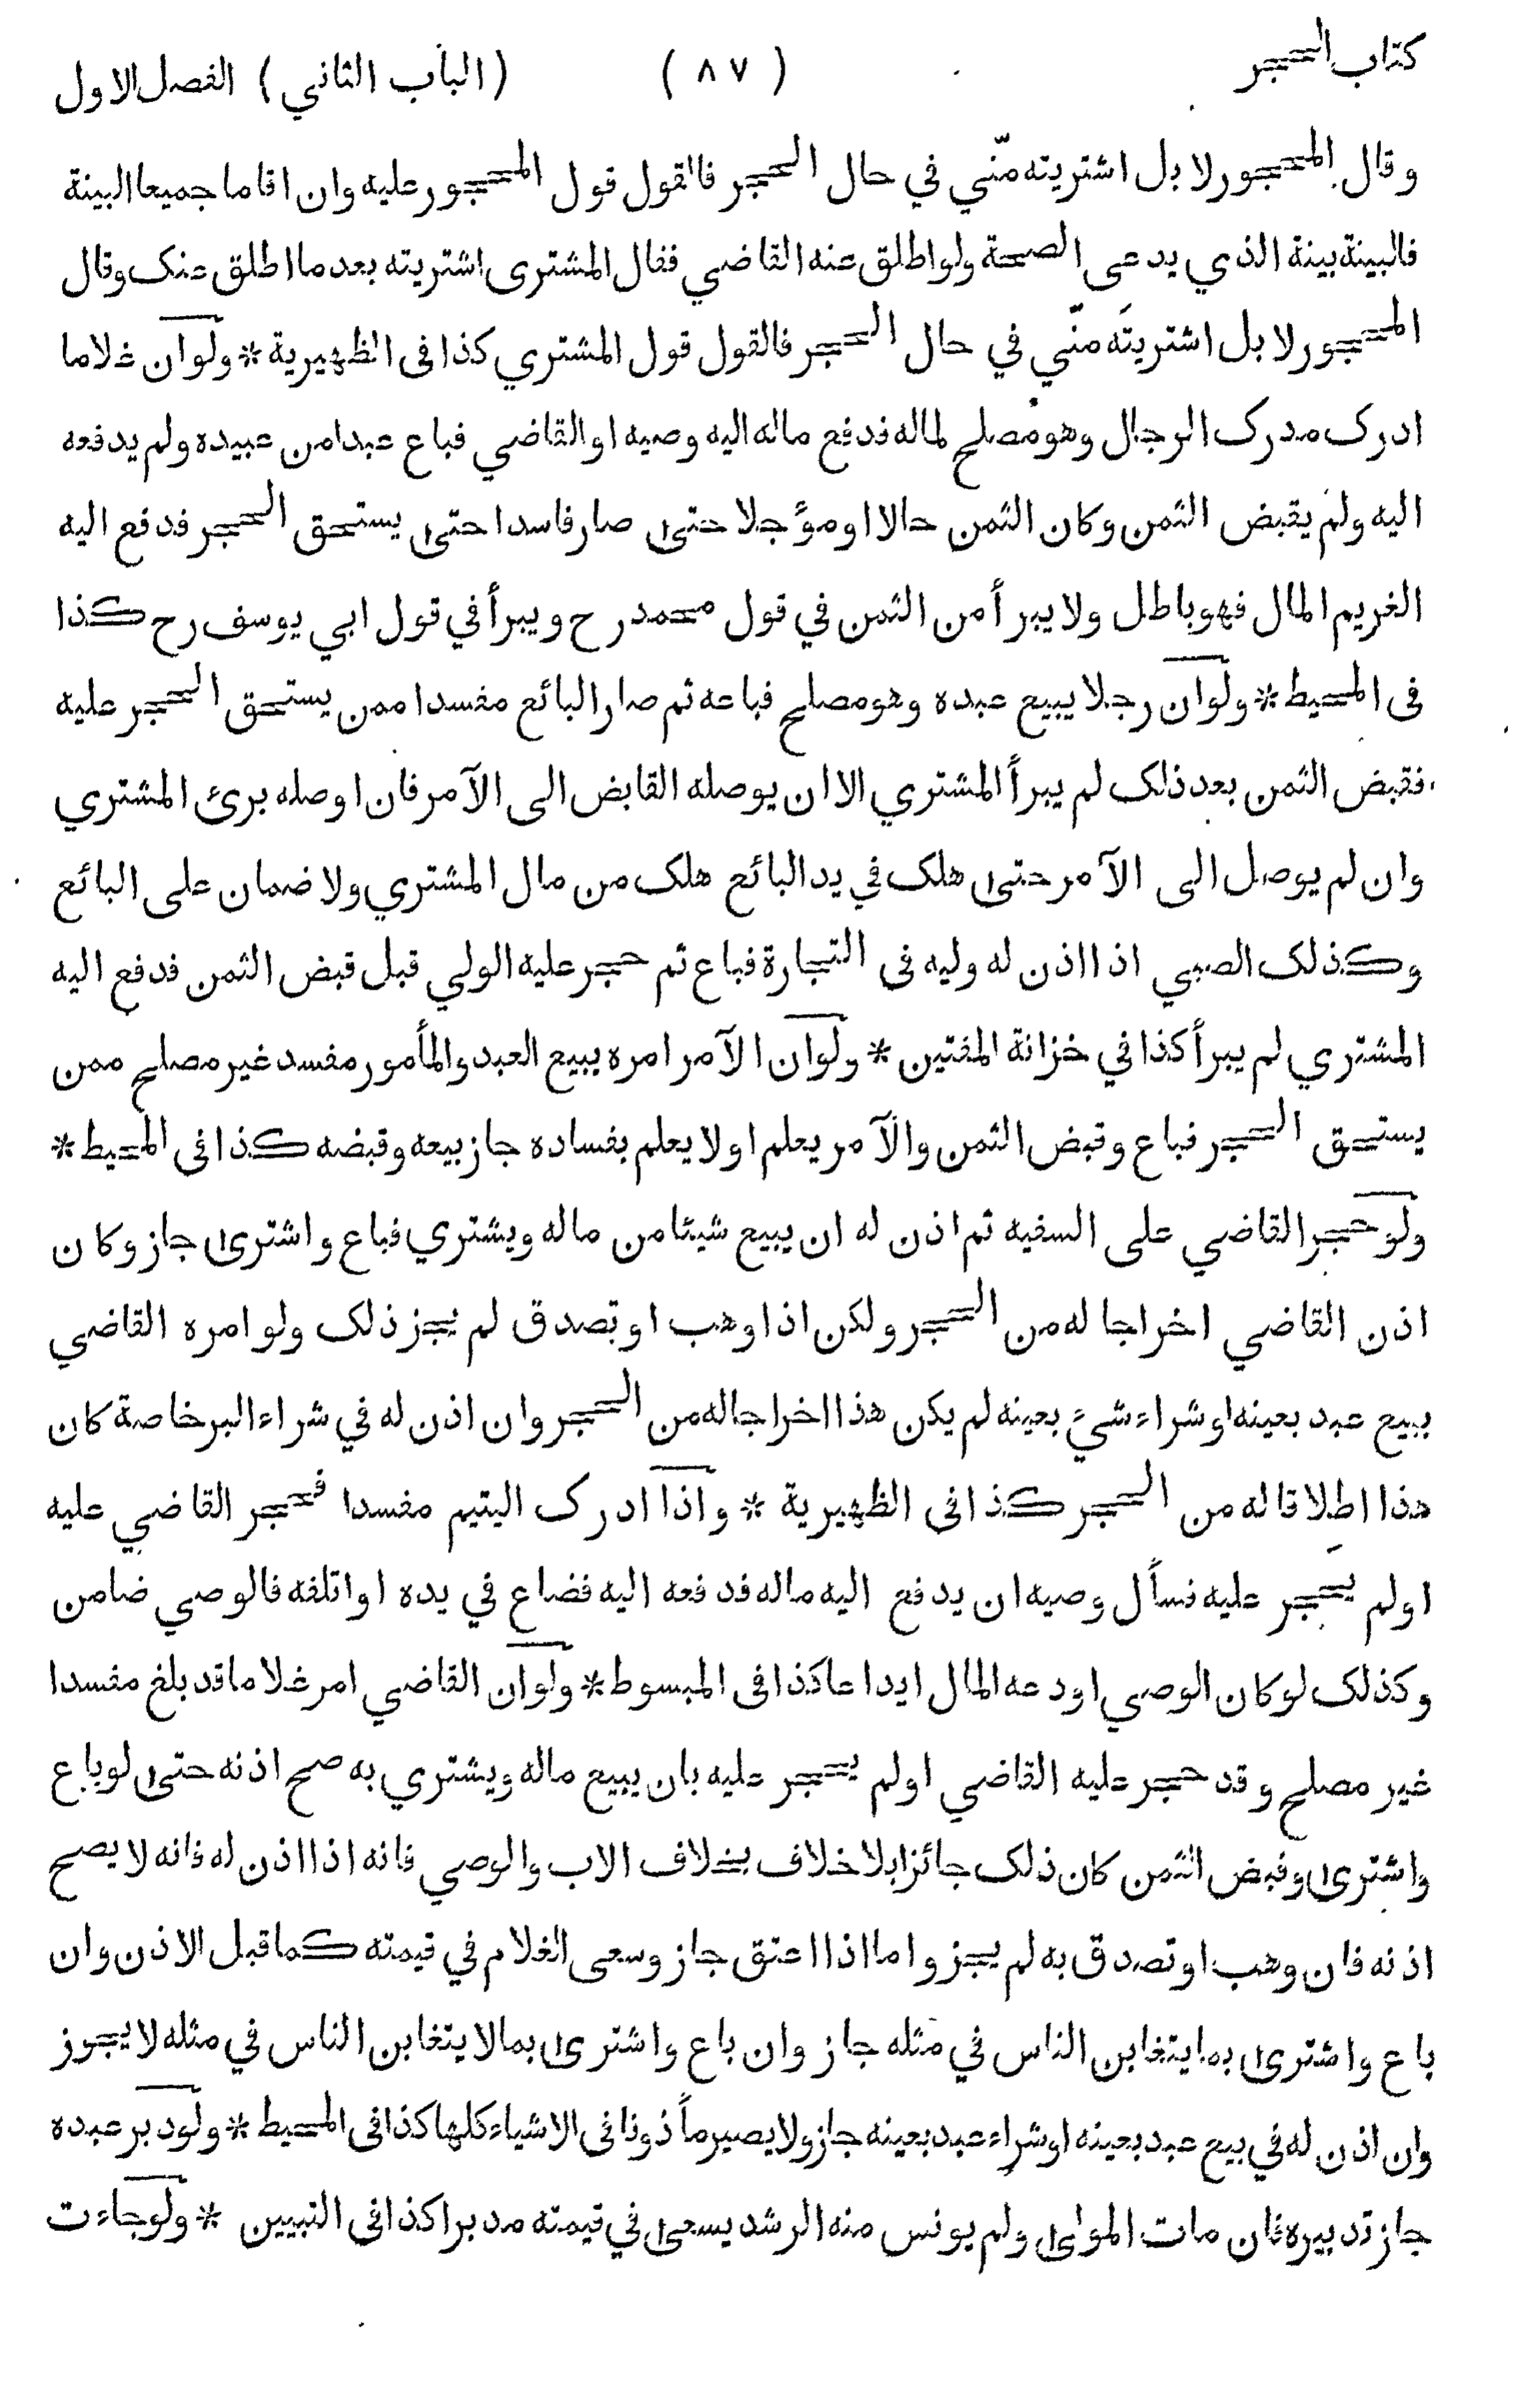 كتاب الحجر ( ٨٧ ) (الباب الثاني) الفصل الاول
وقال المحجور لا بل اشتريته منّي في حال الحجر فالقول قول المحجور عليه وان اقاما جميعا البينة
فالبينة بينة الذي يدعى الصحة ولو اطلق عنه القاضي فقال المشترى اشتريته بعد ما اطلق عنك وقال
المحجور لا بل اشتريتَه منّي في حال الحجر فالقول قول المشتري كذا فى الظهيرية * ولو ان غلاما
ادرك مدرك الرجال وهو مصلح لماله فدفع ماله اليه وصيه او القاضي فباع عبدا من عبيده ولم يدفعه
اليه ولم يقبض الثمن وكان الثمن حالا او مؤجلا حتى صار فاسدا حتى يستحق الحجر فدفع اليه
الغريم المال فهو باطل ولا يبرأ من الثمن في قول محمد رح ويبرأ في قول ابي يوسف رح كذا
فى المحيط * ولو ان رجلا يبيع عبده وهو مصلح فباعه ثم صار البائع مفسدا ممن يستحق الحجر عليه
فقبض الثمن بعد ذلك لم يبرأ المشتري الا ان يوصله القابض الى الآمر فان اوصله برئ المشتري
وان لم يوصل الى الآمر حتى هلك في يد البائع هلك من مال المشتري ولا ضمان على البائع
وكذلك الصبي اذا اذن له وليه فى التجارة فباع ثم حجر عليه الولي قبل قبض الثمن فدفع اليه
المشتري لم يبرأ كذا في خزانة المفتين * ولو ان الآمر امره يبيع العبد والمأمور مفسد غير مصلح ممن
يستحق الحجر فباع وقبض الثمن والآمر يعلم او لا يعلم بفساده جاز بيعه وقبضه كذا فى المحيط *
ولو حجر القاضي على السفيه ثم اذن له ان يبيع شيئا من ماله ويشتري فباع واشترى جاز وكان
اذن القاضي اخراجا له من الحجر ولكن اذا وهب او تصدق لم يجز ذلك ولو امره القاضي
ببيع عبد بعينه او شراء شيء بعينه لم يكن هذا اخراجا له من الحجر وان اذن له في شراء البر خاصة كان
هذا اطلاقا له من الحجر كذا فى الظهيرية * واذا ادرك اليتيم مفسدا فحجر القاضي عليه
او لم يحجر عليه فسأل وصيه ان يدفع اليه ماله فدفعه اليه فضاع في يده او اتلفه فالوصي ضامن
وكذلك لو كان الوصي اودعه المال ايداعا كذا فى المبسوط * ولو ان القاضي امر غلاما قد بلغ مفسدا
غير مصلح وقد حجر عليه القاضي او لم يحجر عليه بان يبيع ماله ويشتري به صح اذنه حتى لو باع
واشترى وقبض الثمن كان ذلك جائزا بلا خلاف بخلاف الاب والوصي فانه اذا اذن له فانه لا يصح
اذنه فان وهب او تصدق به لم يجز واما اذا اعتق جاز وسعى الغلام في قيمته كما قبل الاذن وان
باع واشترى بما يتغابن الناس في مثله جاز وان باع واشترى بما لا يتغابن الناس في مثله لا يجوز
وان اذن له في بيع عبد بعينه او شراء عبد بعينه جاز ولا يصير مأذونا فى الاشياء كلها كذا فى المحيط * ولو دبر عبده
جاز تدبيره فان مات المولى ولم يونس منه الرشد يسعى في قيمته مدبرا كذا فى التبيين * ولو جاءت